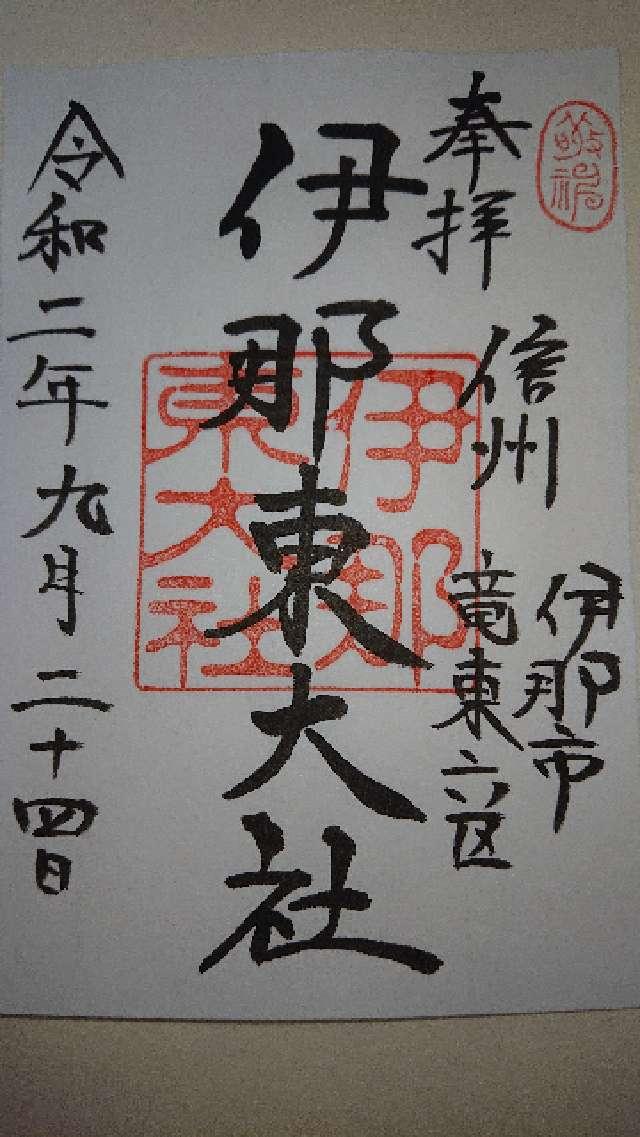 敬神
奉拝
信州
伊那市
竜東六区
伊那東大社
伊那
東大社
令和二年九月二十四日